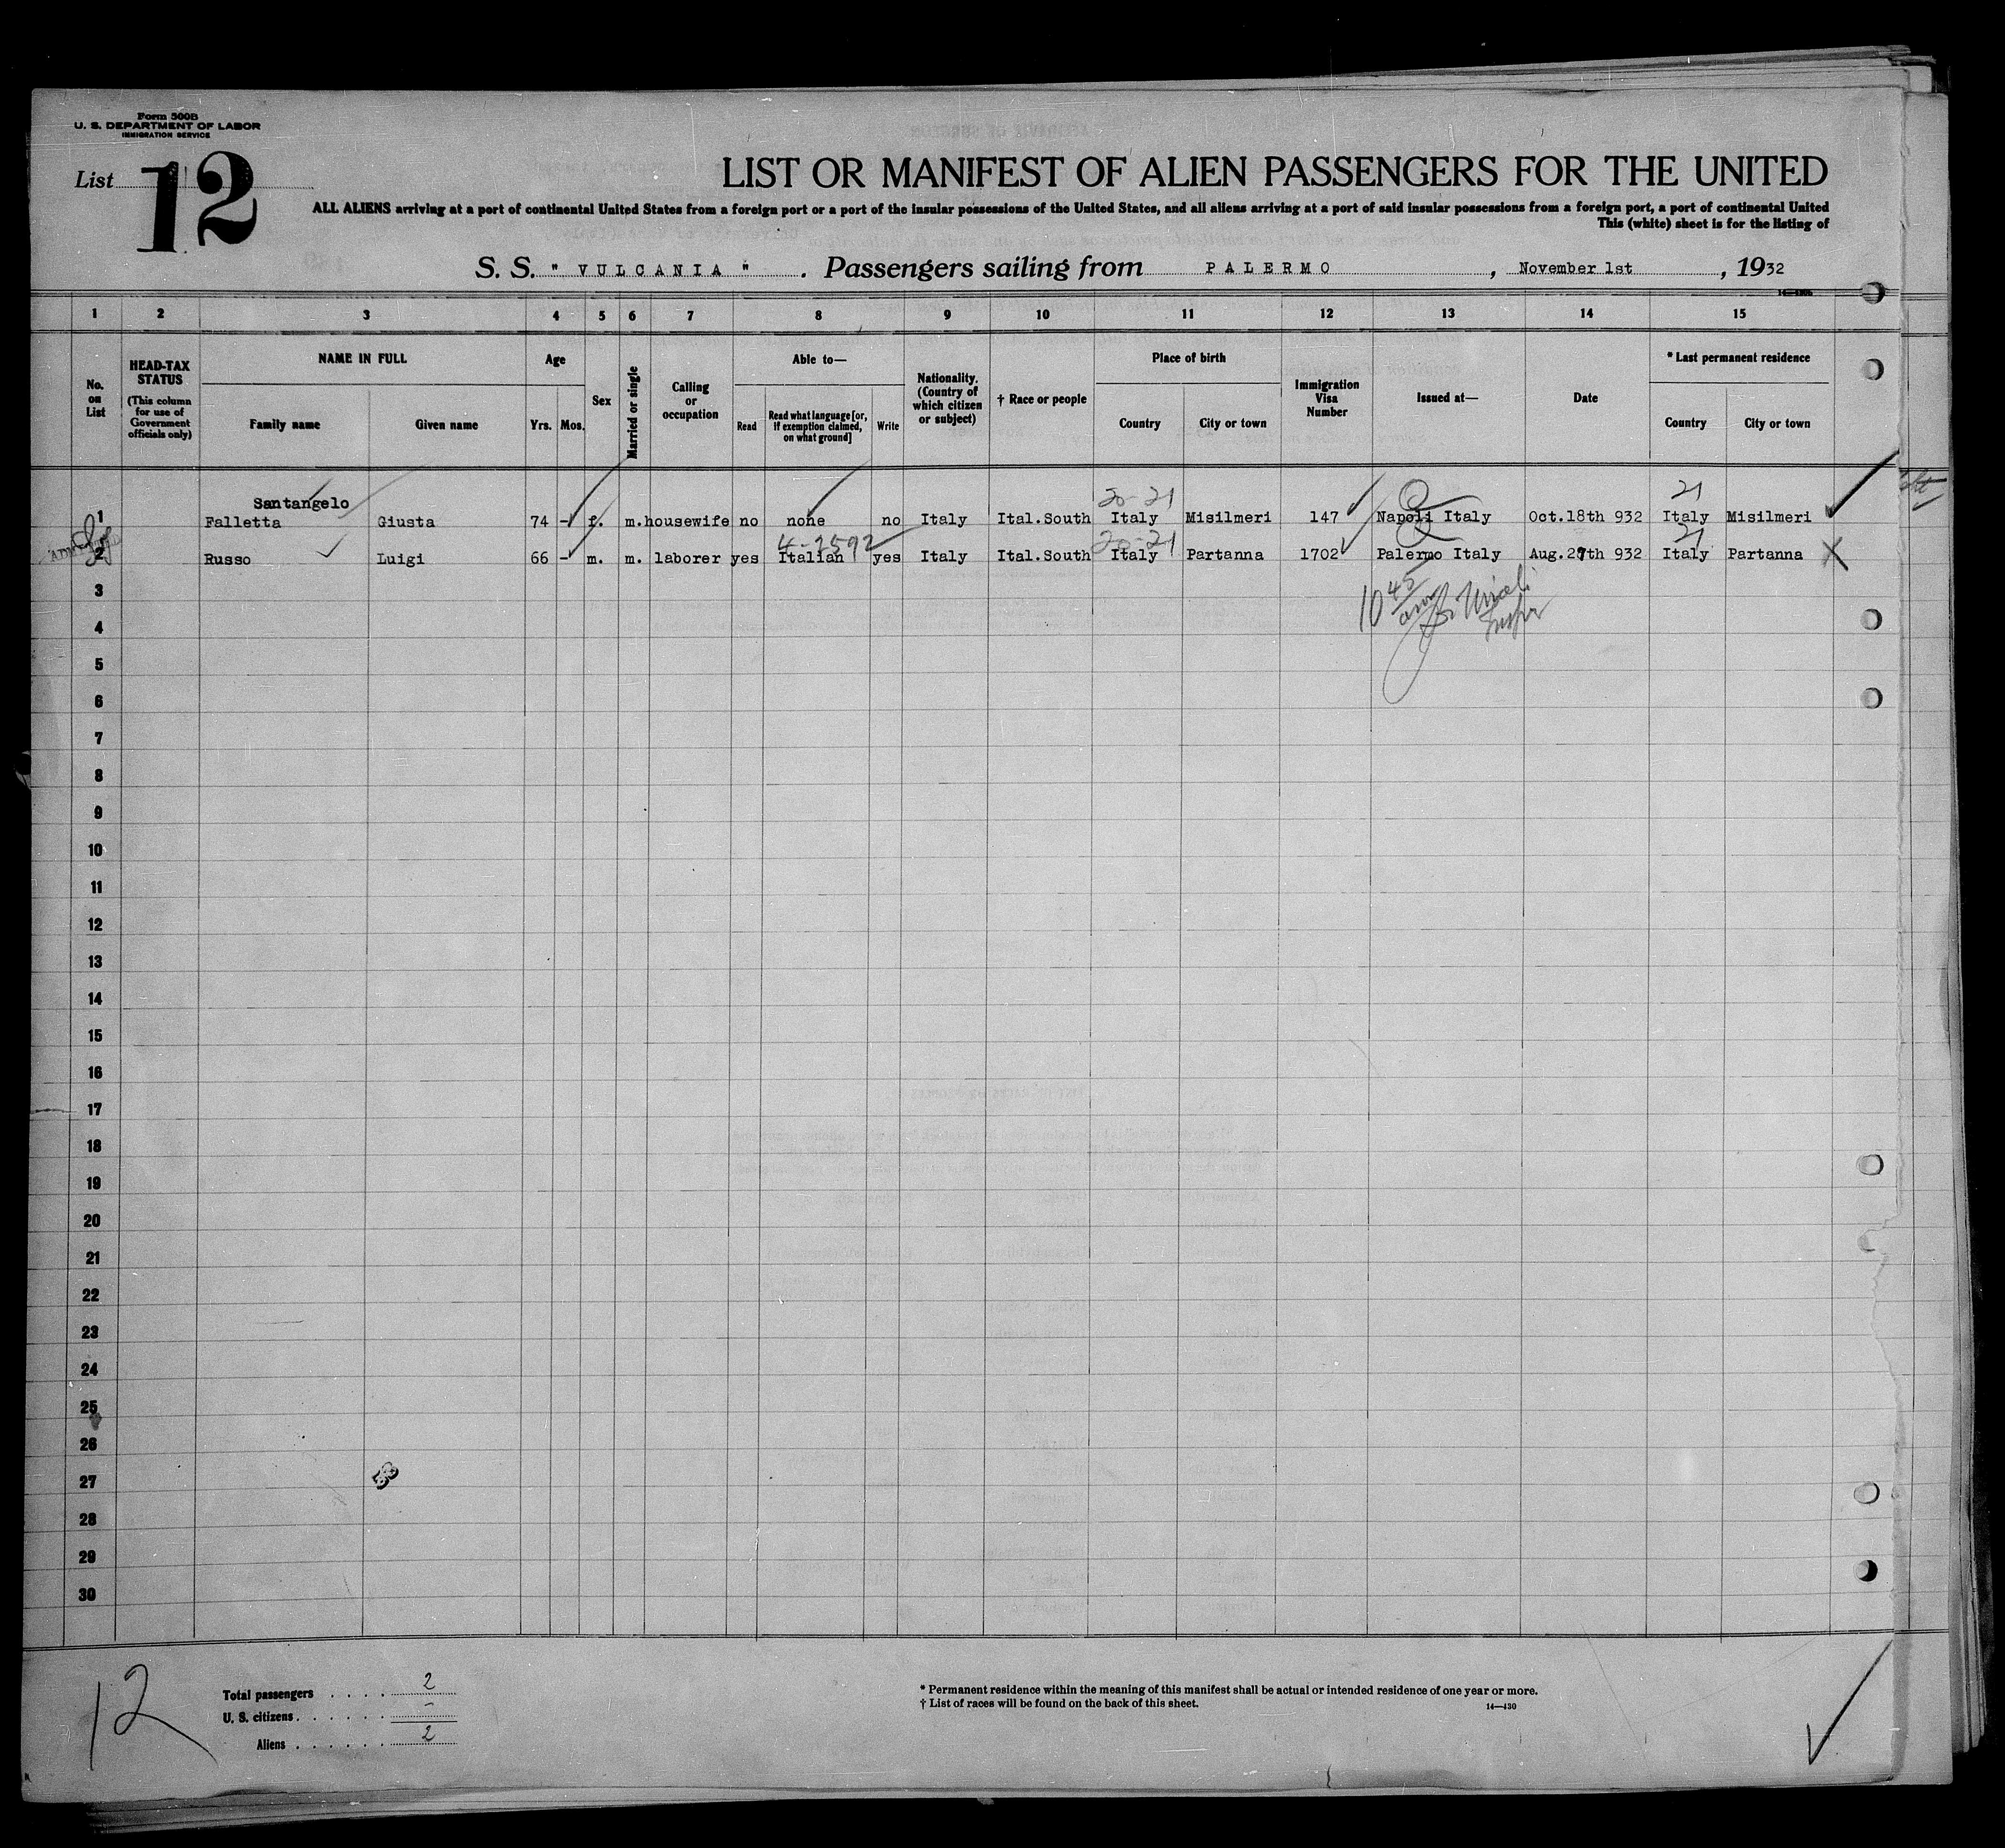 Form 500B
U. S. DEPARTMENT OF LABOR
IMMIGRATION SERVICE
List 12
LIST OR MANIFEST OF ALIEN PASSENGERS FOR THE UNITED
ALL ALIENS arriving at a port of continental United States from a foreign port or a port of the insular possessions of the United States, and all aliens arriving at a port of said insular possessions from a foreign port, a port of continental United
This (white) sheet is for the listing of
S. S. " VULCANIA " . Passengers sailing from PALERMO , November 1st , 1932
1 2 3 4 5 6 7 8 9 10 11 12 13 14 15
No. on List
HEAD-TAX STATUS
(This column for use of Government officials only)
NAME IN FULL
Family name
Given name
Age
Yrs. Mos.
Sex
Married or single
Calling or occupation
Able to—
Read
Read what language [or, if exemption claimed, on what ground]
Write
Nationality. (Country of which citizen or subject)
† Race or people
Place of birth
Country
City or town
Immigration Visa Number
Issued at—
Date
* Last permanent residence
Country
City or town
Santangelo 20-21 21
1 Falletta Giusta 74 - f. m. housewife no none no Italy Ital.South Italy Misilmeri 147 Napoli Italy Oct.18th 932 Italy Misilmeri
4-2592 20-21 21
2 Russo Luigi 66 - m. m. laborer yes Italian yes Italy Ital.South Italy Partanna 1702 Palermo Italy Aug.29th 932 Italy Partanna X
10 45
3
4
5
6
7
8
9
10
11
12
13
14
15
16
17
18
19
20
21
22
23
24
25
26
27
28
29
30
12
Total passengers . . . . 2
U. S. citizens . . . . . . -
Aliens . . . . . . 2
* Permanent residence within the meaning of this manifest shall be actual or intended residence of one year or more.
† List of races will be found on the back of this sheet.
14—430